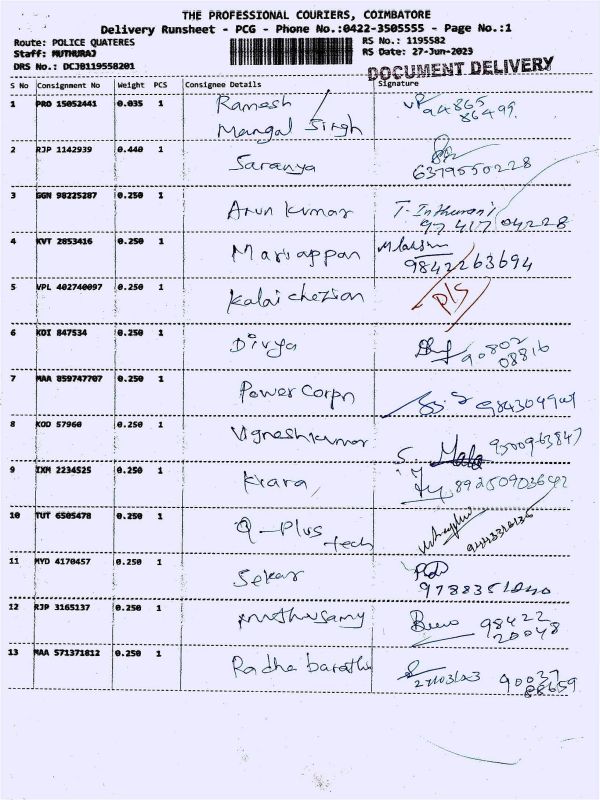 THE PROFESSIONAL COURIERS, COIMBATORE
Delivery Runsheet - PCG - Phone No.:0422-3505555 - Page No.:1
Route: POLICE QUATERES RS No.: 1195582
Staff: MUTHURAJ RS Date: 27-Jun-2023
DRS No.: DCJB119558201 DOCUMENT DELIVERY
S No Consignment No Weight PCS Consignee Details Signature
1 PRO 15052441 0.035 1 Ramesh 94865
Mangal Singh 86499
2 RJP 1142939 0.440 1 Saranya
6379550228
3 GGN 98225287 0.250 1 Arun kumar T. Inthurani
97417 04228
4 KVT 2853416 0.250 1 Mariappan
9842263694
5 VPL 402740097 0.250 1 Kalai chezian D/S
6 KOI 847534 0.250 1 Divya 90802
08816
7 MAA 859747707 0.250 1 Power Corpn
8 KOD 57960 0.250 1 Vigneshkumar S. Mala 9500963847
9 IXM 2234525 0.250 1 Kiara, 89250903642
10 TUT 6505478 0.250 1 Q-Plus
tech
11 MYD 4170457 0.250 1 Sekar
12 RJP 3165137 0.250 1 muthusamy 98422
20048
13 MAA 571371812 0.250 1 Radha barathi 90037
88659